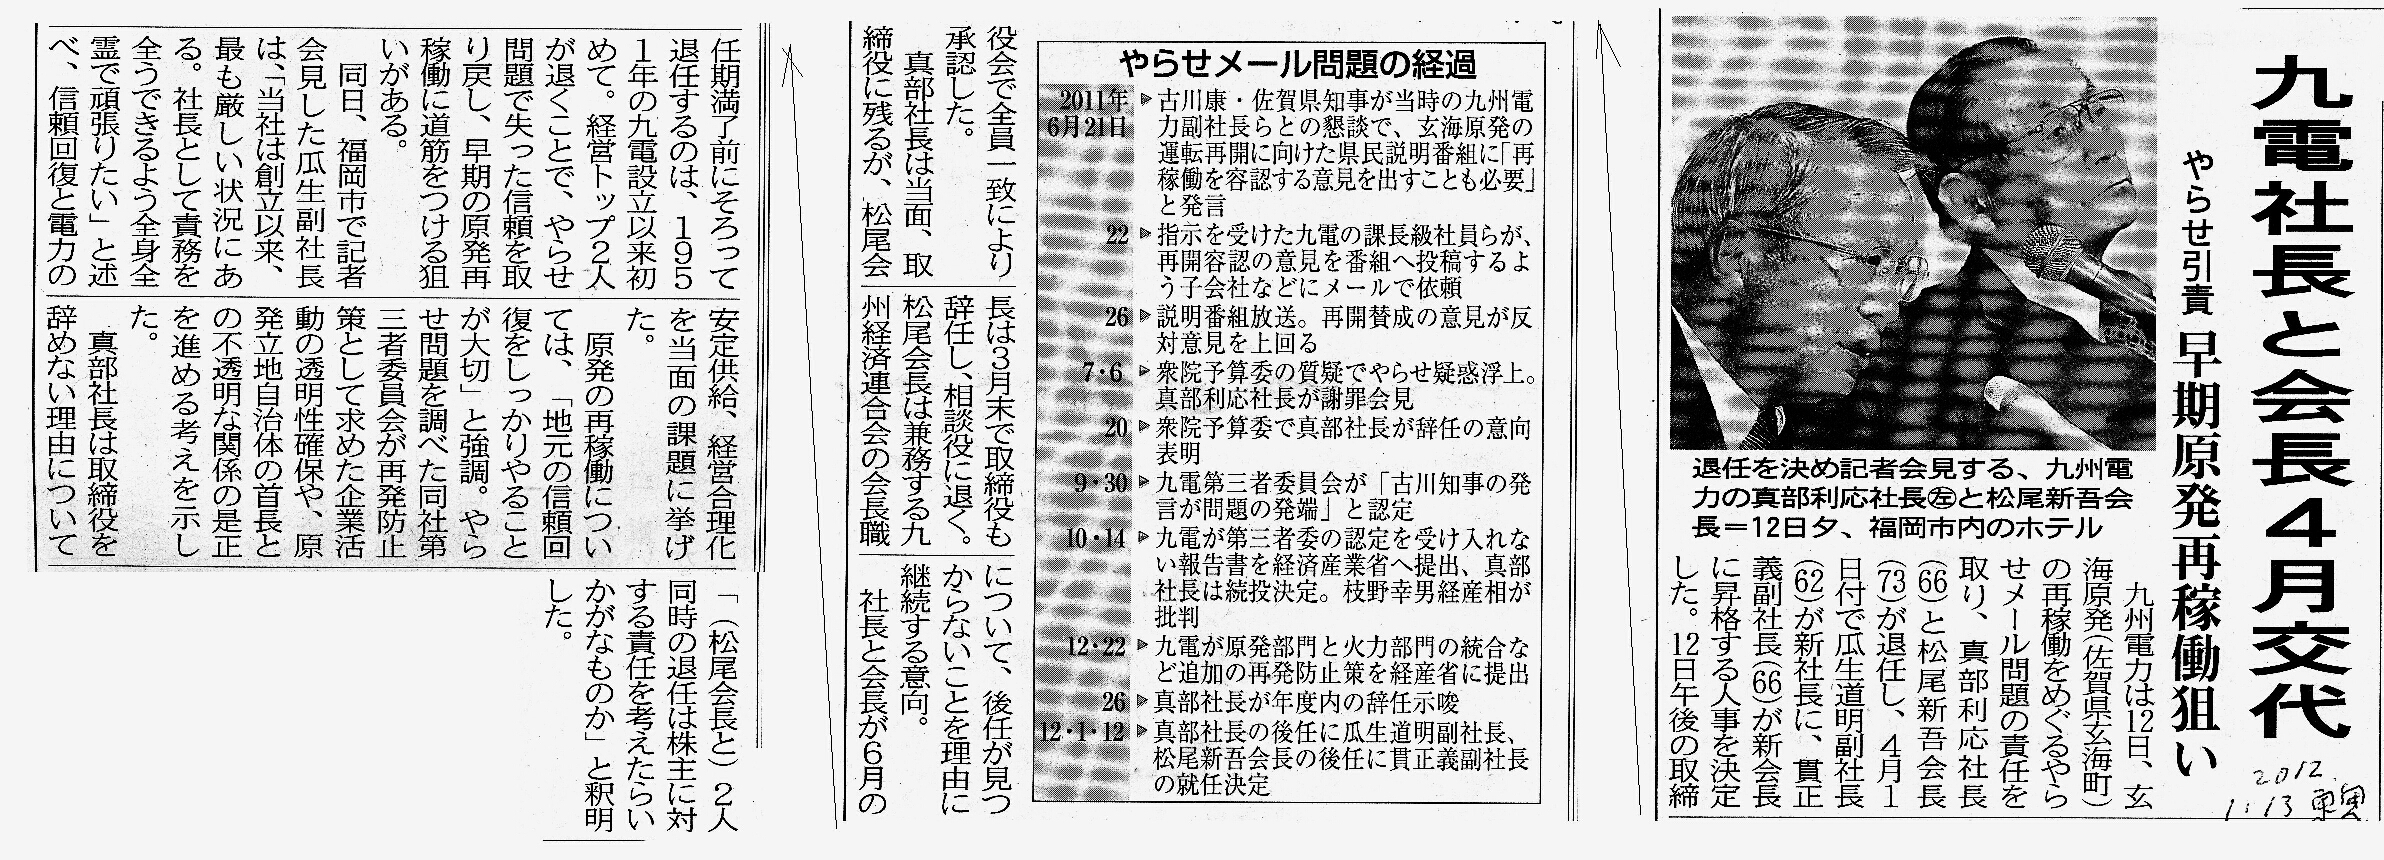 九電社長と会長4月交代
やらせ引責 早期原発再稼働狙い
2012.
1.13
退任を決め記者会見する、九州電
力の真部利応社長㊧と松尾新吾会
長＝12日夕、福岡市内のホテル
九州電力は12日、玄
海原発(佐賀県玄海町)
の再稼働をめぐるやら
せメール問題の責任を
取り、真部利応社長
(66)と松尾新吾会長
(73)が退任し、4月1
日付で瓜生道明副社長
(62)が新社長に、貫正
義副社長(66)が新会長
に昇格する人事を決定
した。12日午後の取締
やらせメール問題の経過
2011年
6月21日
▶古川康・佐賀県知事が当時の九州電
力副社長らとの懇談で、玄海原発の
運転再開に向けた県民説明番組に「再
稼働を容認する意見を出すことも必要」
と発言
22 ▶指示を受けた九電の課長級社員らが、
再開容認の意見を番組へ投稿するよ
う子会社などにメールで依頼
26 ▶説明番組放送。再開賛成の意見が反
対意見を上回る
7・6 ▶衆院予算委の質疑でやらせ疑惑浮上。
真部利応社長が謝罪会見
20 ▶衆院予算委で真部社長が辞任の意向
表明
9・30 ▶九電第三者委員会が「古川知事の発
言が問題の発端」と認定
10・14 ▶九電が第三者委の認定を受け入れな
い報告書を経済産業省へ提出、真部
社長は続投決定。枝野幸男経産相が
批判
12・22 ▶九電が原発部門と火力部門の統合な
ど追加の再発防止策を経産省に提出
26 ▶真部社長が年度内の辞任示唆
12・1・12 ▶真部社長の後任に瓜生道明副社長、
松尾新吾会長の後任に貫正義副社長
の就任決定
役会で全員一致により
承認した。
真部社長は当面、取
締役に残るが、松尾会
長は3月末で取締役も
辞任し、相談役に退く。
松尾会長は兼務する九
州経済連合会の会長職
について、後任が見つ
からないことを理由に
継続する意向。
社長と会長が6月の
任期満了前にそろって
退任するのは、195
1年の九電設立以来初
めて。経営トップ2人
が退くことで、やらせ
問題で失った信頼を取
り戻し、早期の原発再
稼働に道筋をつける狙
いがある。
同日、福岡市で記者
会見した瓜生副社長
は、「当社は創立以来、
最も厳しい状況にあ
る。社長として責務を
全うできるよう全身全
霊で頑張りたい」と述
べ、信頼回復と電力の
安定供給、経営合理化
を当面の課題に挙げ
た。
原発の再稼働につい
ては、「地元の信頼回
復をしっかりやること
が大切」と強調。やら
せ問題を調べた同社第
三者委員会が再発防止
策として求めた企業活
動の透明性確保や、原
発立地自治体の首長と
の不透明な関係の是正
を進める考えを示し
た。
真部社長は取締役を
辞めない理由について
「(松尾会長と)2人
同時の退任は株主に対
する責任を考えたらい
かがなものか」と釈明
した。